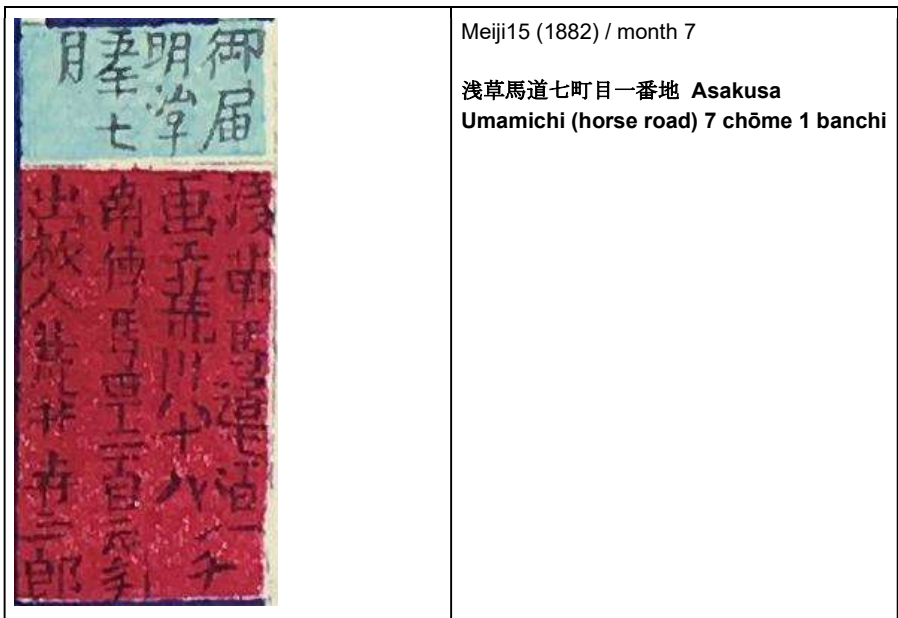 御届
明治十
五年七
月
浅草馬道
画工荒川八十八
南傳馬町二丁目
出板人
三郎
Meiji15 (1882) / month 7
浅草馬道七町目一番地 Asakusa
Umamichi (horse road) 7 chōme 1 banchi